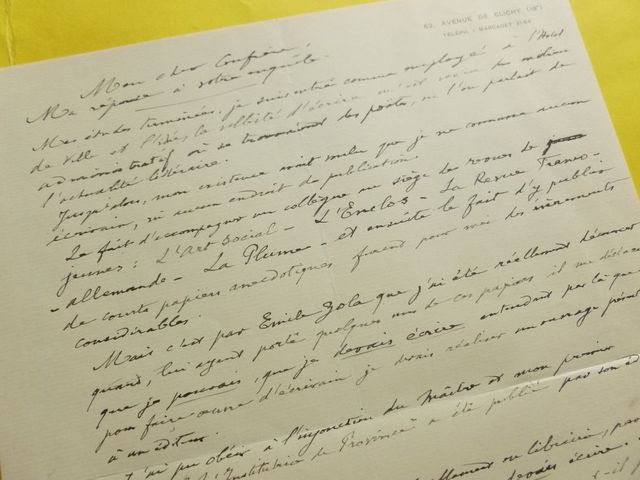 62, AVENUE DE CLICHY (18e)
TÉLÉPH : MARCADET 21-64
Mon cher Confrère,
Ma réponse à votre enquête.
Mes études terminées, je suis entré comme employé à l'Hôtel
de Ville et l'idée, la volonté d'écrire m'est venue du milieu
administratif où se trouvaient des poètes, où l'on parlait de
l'actualité littéraire.
Jusqu'alors, mon existence avait voulu que je ne connusse aucun
écrivain, ni aucun endroit de publication.
Le fait d'accompagner un collègue au siège des revues de
jeunes : L'Art Social - L'Enclos - La Revue Franco-
-allemande - La Plume - et ensuite le fait d'y publier
de courts papiers anecdotiques furent pour moi des événements
considérables.
Mais c'est par Emile Zola que j'ai été réellement
quand, lui ayant porté quelques uns de ces papiers, il me
que je pouvais, que je devais écrire entendant par là que
pour faire œuvre d'écrivain je devais réaliser un ouvrage
à un éditeur.
J'ai pu obéir à l'injonction du Maître et mon premier
Institutrice de Province" a été publié par son
ou libraire,
devais écrire.